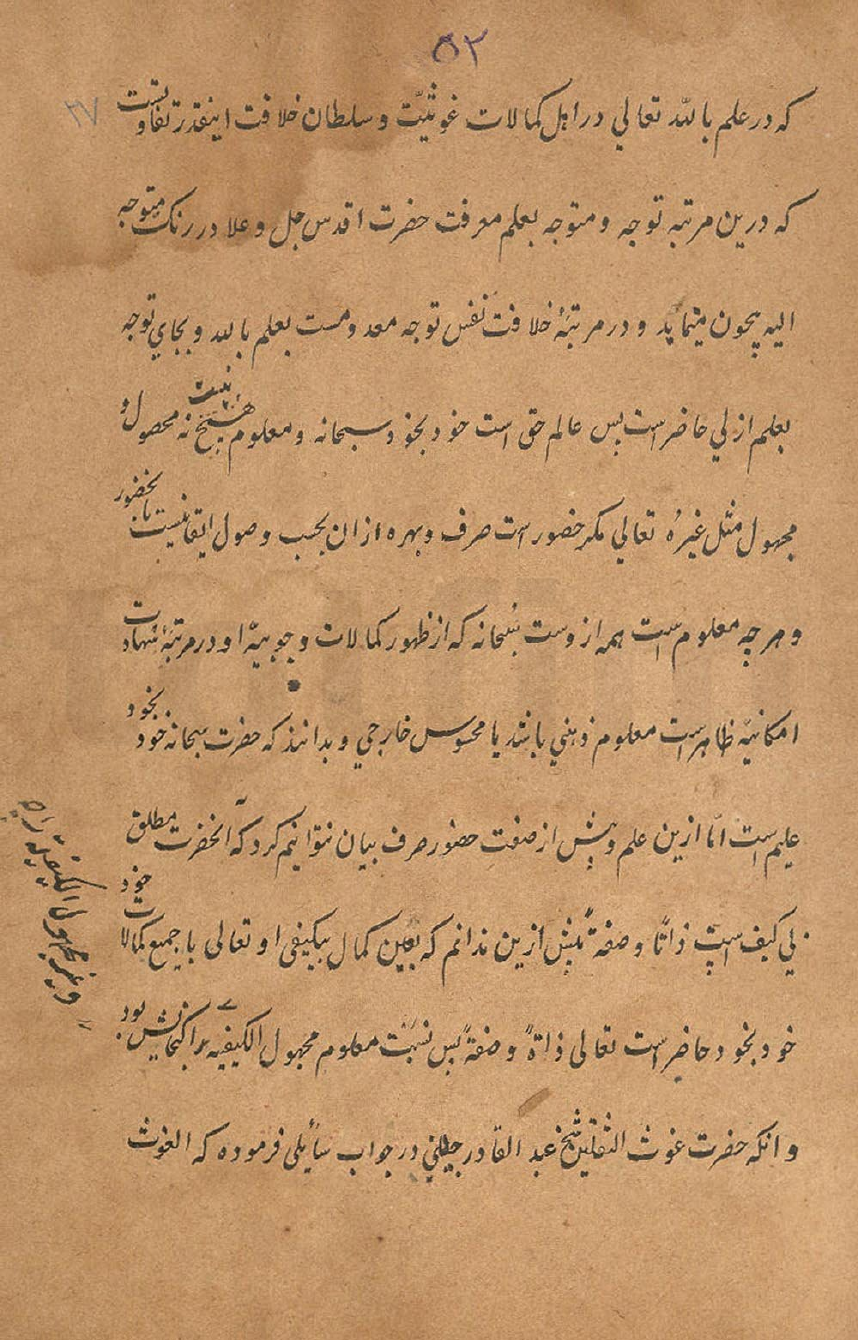 ۵۲
۲۷
که در علم بالله تعالی در اهل کمالات غوثیّت و سلطان خلافت اینقدر تفاوتست
که درین مرتبه توجه و متوجه بعلم معرفت حضرت اقدس جل و علا در رنک متوجه
الیه بیچون مینماید و در مرتبهٔ خلافت نفس توجه معدومست بعلم بالله و بجای توجه
بعلم ازلی حاضر است پس عالم حق است خود بخود سبحانه و معلوم هیچ نیست نه محصول و
مجهول مثل غیرهُ تعالی مکر حضور است صرف و بهره ازان بحب وصول ایقانیست بحضور
و هرچه معلوم است همه ازوست سُبحانه که از ظهور کمالات وجوبیهٔ او در مرتبهٔ شهادت
امکانیه ظاهر است معلوم ذهنی باشد یا محسوس خارجی و بدانند که حضرت سبحانه خود بخود
علیم است امّا ازین علم و بیش از صفت حضور صرف بیان نتوانیم کرد که آنحضرت مطلق
بی کیف است ذاتًا و صفةً بیش ازین ندانم که بعین کمال بیکیفی او تعالی با جمیع کمالات خود
خود بخود حاضر است تعالی ذاتهً و صفةً پس نسبت معلوم مجهول الکیفیه را کنجایش بود
و انکه حضرت غوث الثقلین شیخ عبد القادر جیلی در جواب سائلی فرموده که الغوث
و غیر مجهول الکیفیة را چه